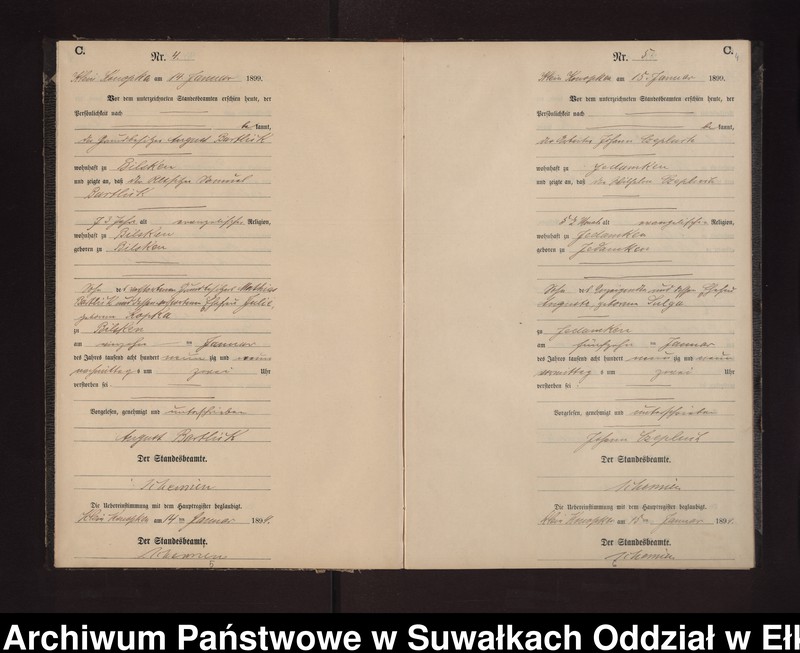 C.
Nr. 4.
Klein Konopka am 14 Januar 1899.
Vor dem unterzeichneten Standesbeamten erschien heute, der
Persönlichkeit nach
be kannt,
der Grundbesitzer August Bartlick
wohnhaft zu Bilsken
und zeigte an, daß der Altsitzer Samuel
Bartlick
Jahr alt evangelischer Religion,
wohnhaft zu Bilsken
geboren zu Bilsken
Sohn des verstorbenen Grundbesitzers Mathias
Bartlick und dessen verstorbenen Ehefrau Julie,
geborene Kopka
zu Bilsken
am vierzehn ten Januar
des Jahres tausend acht hundert neun zig und neun
vormittag s um zwei Uhr
verstorben sei
Vorgelesen, genehmigt und unterschrieben
August Bartlick
Der Standesbeamte.
Die Uebereinstimmung mit dem Hauptregister beglaubigt.
Klein Konopka am 14 ten Januar 1899.
Der Standesbeamte.
5
C.
Nr. 5.
Klein Konopka am 15. Januar 1899.
Vor dem unterzeichneten Standesbeamten erschien heute, der
Persönlichkeit nach
be kannt,
der Arbeiter Johann
wohnhaft zu Jedamken
und zeigte an, daß der Wilhelm
alt evangelischer Religion,
wohnhaft zu Jedamken
geboren zu Jedamken
Sohn des Anzeigenden und dessen Ehefrau
Auguste, geborene Sulga
zu Jedamken
am fünfzehn ten Januar
des Jahres tausend acht hundert neun zig und neun
vormittag s um zwei Uhr
verstorben sei
Vorgelesen, genehmigt und unterschrieben
Johann
Der Standesbeamte.
Die Uebereinstimmung mit dem Hauptregister beglaubigt.
Klein Konopka am 15 ten Januar 1899.
Der Standesbeamte.
Archiwum Państwowe w Suwałkach Oddział w Ełk